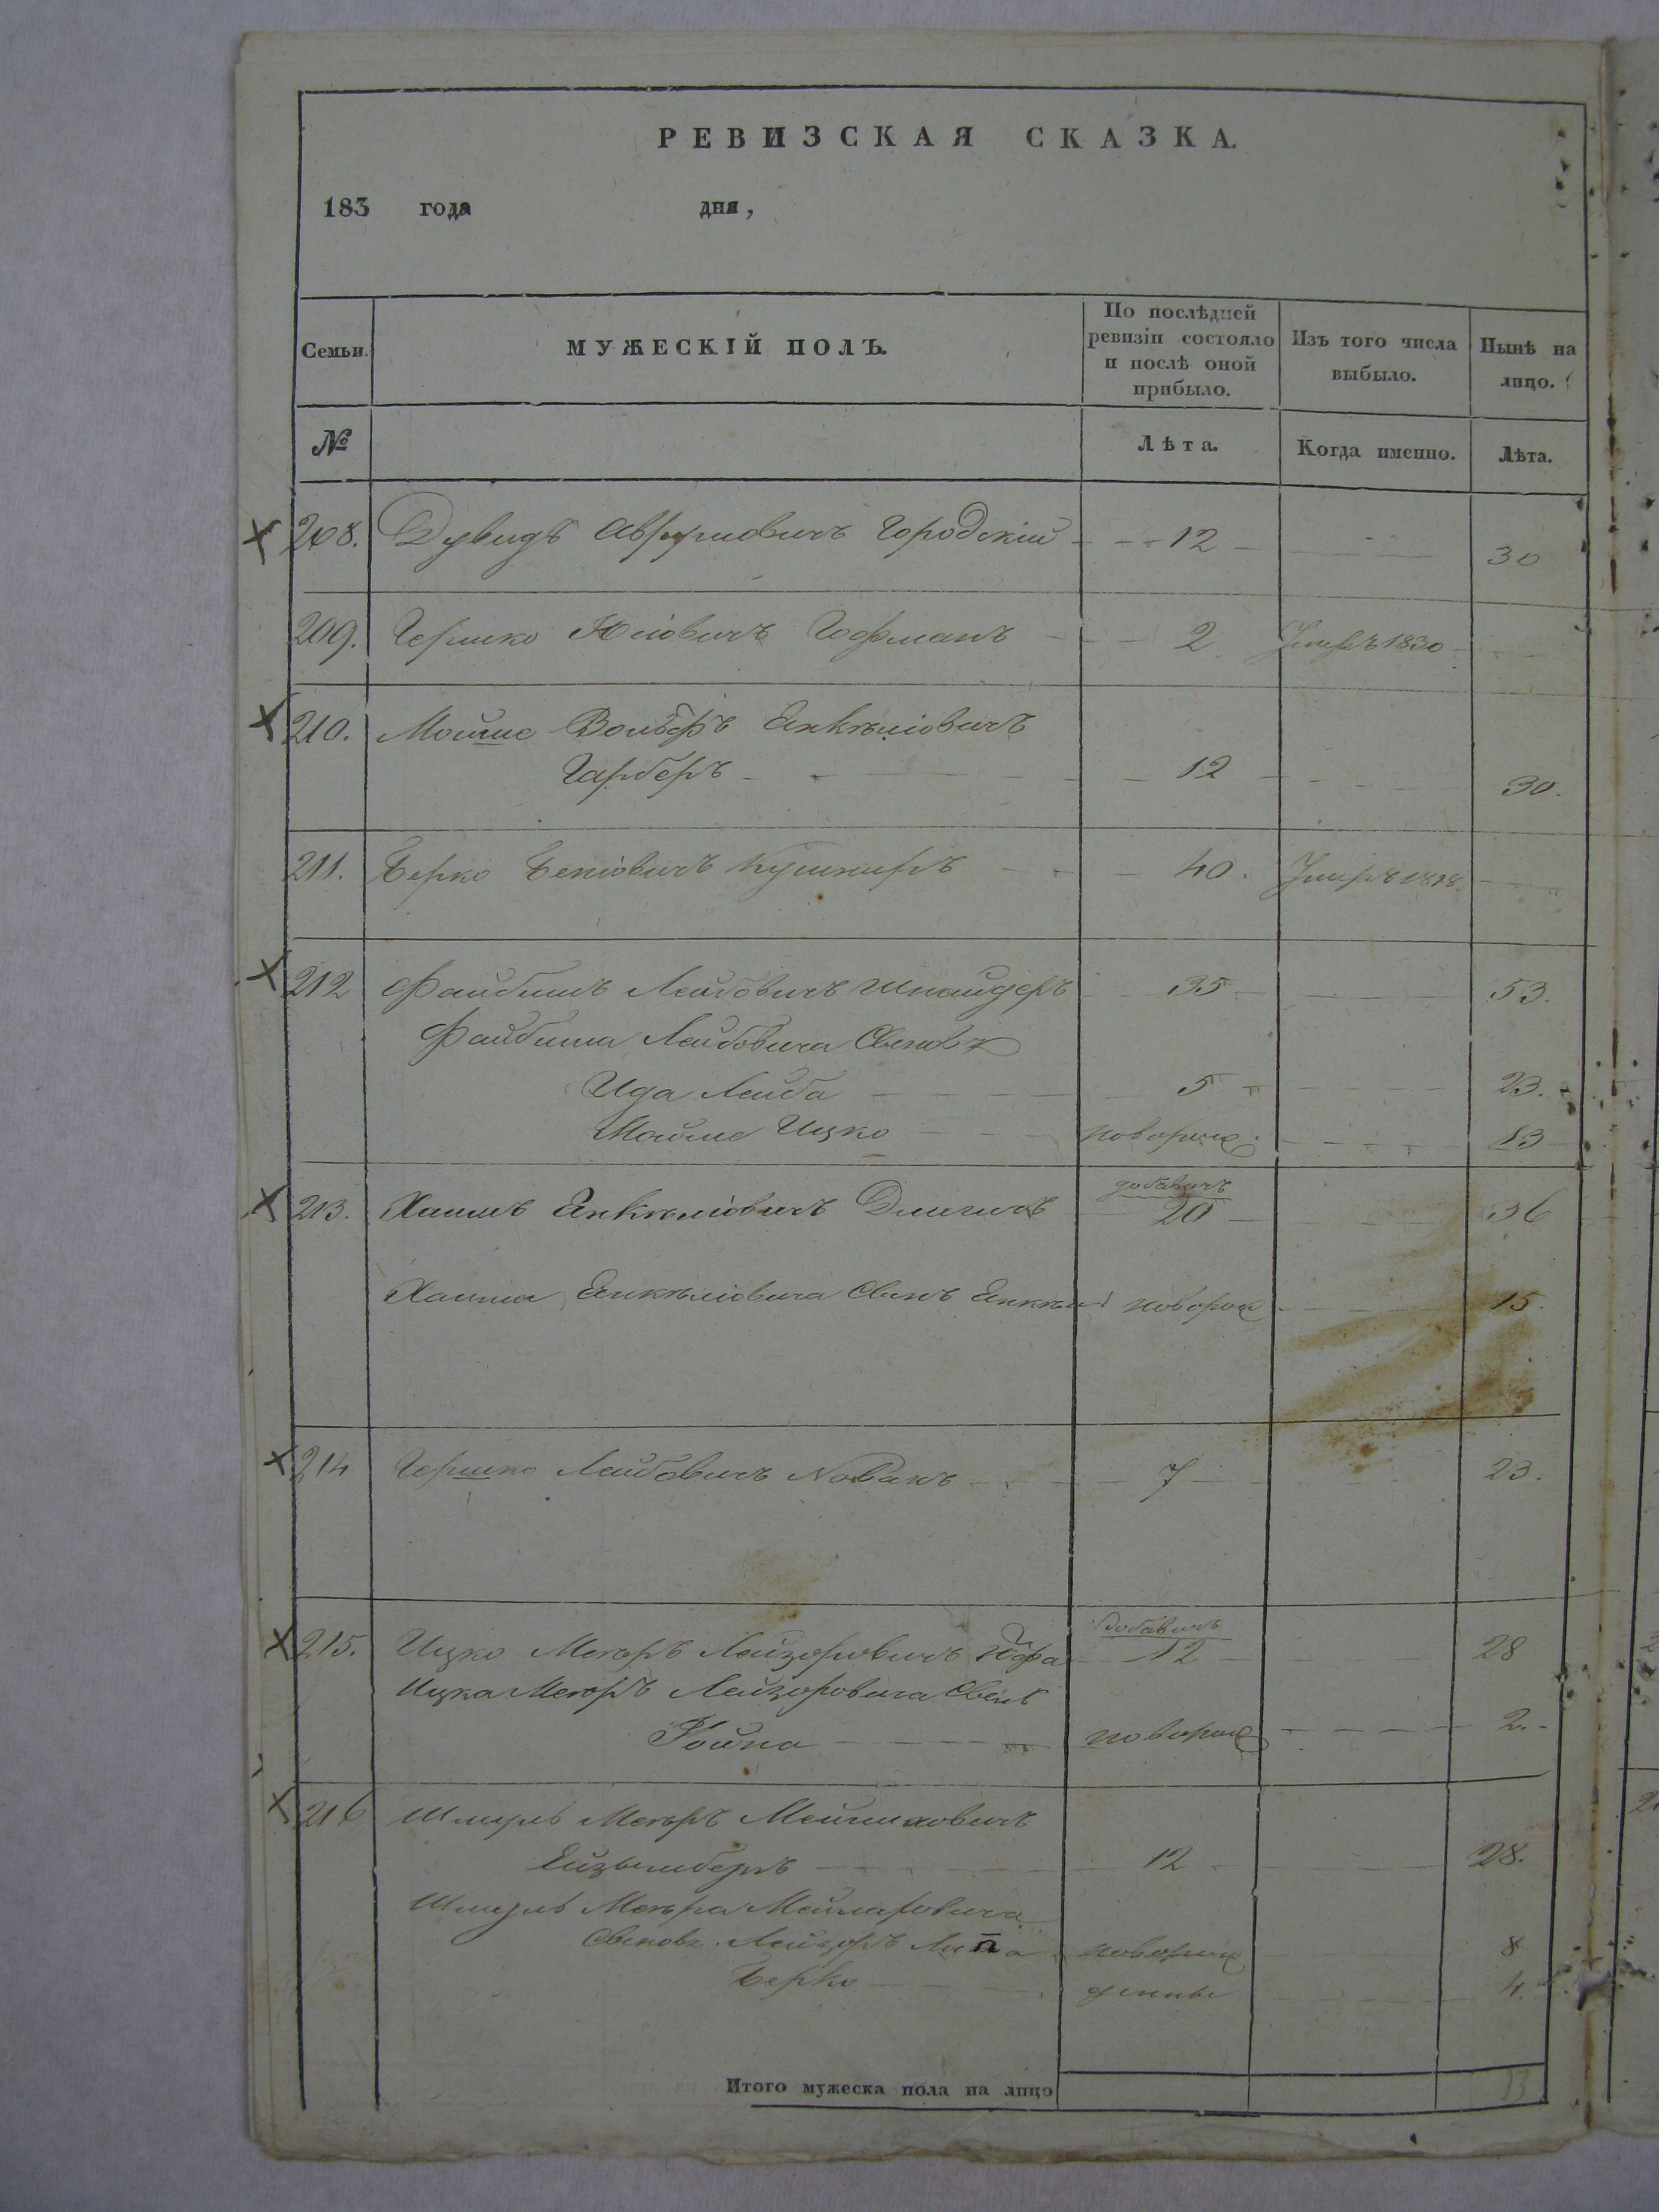 РЕВИЗСКАЯ СКАЗКА.
183 года дня,
Семьи. МУЖЕСКІЙ ПОЛЪ. По послѣдней ревизіи состояло и послѣ оной прибыло. Изъ того числа выбыло. Нынѣ на лицо.
№ Лѣта. Когда именно. Лѣта.
208. Дувидъ Аврумовичъ Городскій 12 30
209. Гершко Юліовичъ Гофманъ 2 Умеръ 1830
210. Мойше Вольфъ Янкелювичъ
Гарберъ 12 30.
211. Берко Кушниръ 40. Умеръ 1818
212 Файбишъ Лейбовичъ Шнайдеръ 35 53.
Файбиша Лейбовича Сыновья
Лейба 5 23.
Мойше Ицко новорож. 13
213. Хаимъ Янкеліовичъ добавичъ 20 36
Хаима Янкеліовича Сынъ Янкель новорож 15.
214 Гершко Лейбовичъ Новакъ 7 23.
215. Ицко Меэръ Лейзоровичъ добавичъ 12 28
Ицка Меэръ Лейзоровича Сынъ
новорож 2.
216 Шмуль Меэръ
12 28.
Шмуль Меэра
Сыновья Лейзоръ новорож 8
Берко 4.
Итого мужеска пола на лицо 13